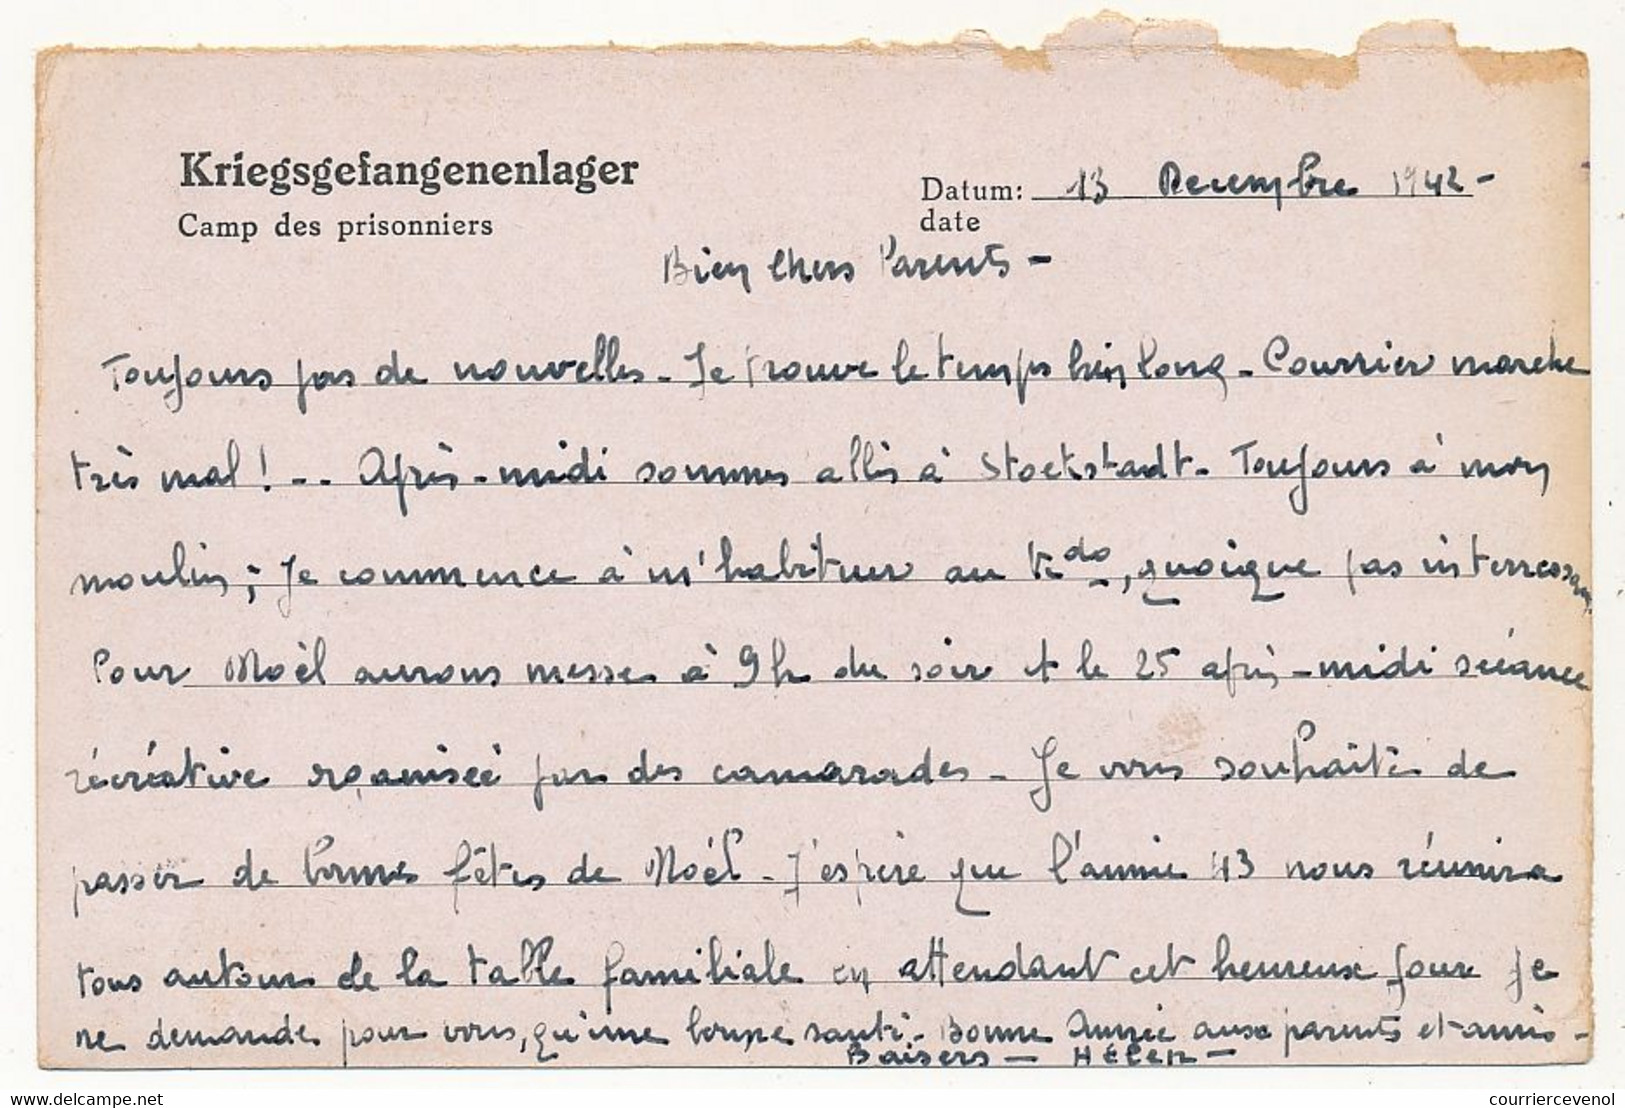 Kriegsgefangenenlager
Camp des prisonniers
Datum: 13 Decembre 1942 -
date
Bien chers Parents -
Toujours pas de nouvelles - Je trouve le temps bien long - Courrier marche
très mal ! -- Après-midi sommes allés à Stockstadt - Toujours à mon
moulin ; Je commence à m'habituer au Kdo, quoique pas interressant
Pour Noël aurons messe à 9h du soir et le 25 après-midi séance
récréative organisée par des camarades - Je vous souhaite de
passer de bonnes fêtes de Noël - J'espère que l'année 43 nous réunira
tous autour de la table familiale en attendant cet heureux jour je
ne demande pour vous, qu'une bonne santé - Bonne Année aux parents et amis -
Baisers -
delcampe.net
courriercevenol